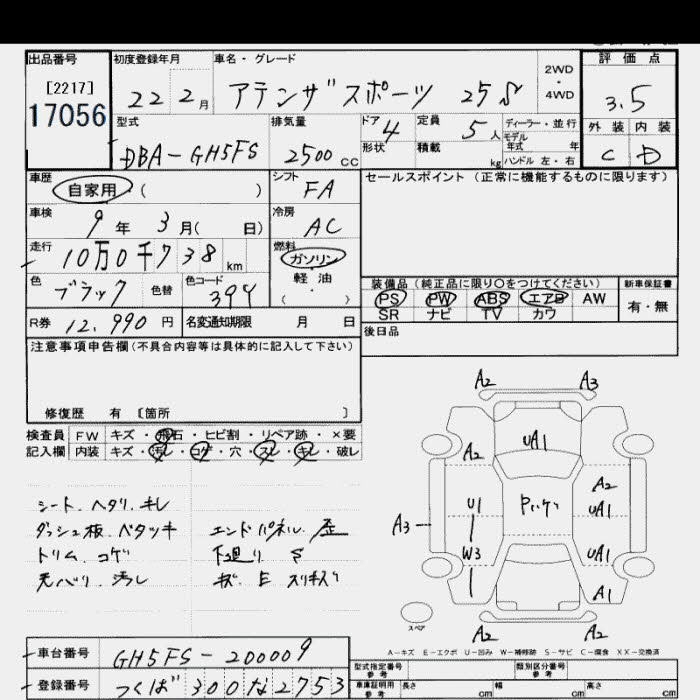 出品番号 初度登録年月 車名・グレード 2WD・4WD 評価点
[2217]
17056
22 2月 アテンザスポーツ 25S 3.5
型式 排気量 ドア 4 定員 5人 ディーラー・並行 外装 内装
モデル年式 年
DBA-GH5FS 2500CC 形状 積載 kg ハンドル 左・右 C D
車歴 シフト セールスポイント (正常に機能するものに限ります)
自家用 ( ) FA
車検 冷房
9年 3月( 日) AC
走行 燃料
10万0千738km ガソリン
色 ブラック 色替 色コード 394 軽油
( ・ )
装備品 (純正品に限り○をつけてください) 新車保証書
PS PW ABS エアB AW 有・無
SR ナビ TV カワ
R券 12,990円 名変通知期限 月 日
後日品
注意事項申告欄(不具合内容等は具体的に記入して下さい)
修復歴 有 〔箇所 〕
検査員 FW キズ・飛石・ヒビ割・リペア跡・×要
記入欄 内装 キズ・汚レ・コゲ・穴・スレ・キレ・破レ
シート、ヘタリ、キレ
ダッシュ板、ベタツキ
トリム、コゲ
天バリ、汚レ
エンドパネル、歪
下廻り S
A2 A3
UA1
A2 A2
A3 U1 UA1
W3 UA1
A1
A2 A2
スペア
A-キズ E-エクボ U-凹み W-補修跡 S-サビ C-腐食 XX-交換済
車台番号 GH5FS-200009
登録番号 つくば 300 な 2753
型式指定番号 参考 類別区分番号 参考
車庫証明用 参考 長さ cm 幅 cm 高さ cm